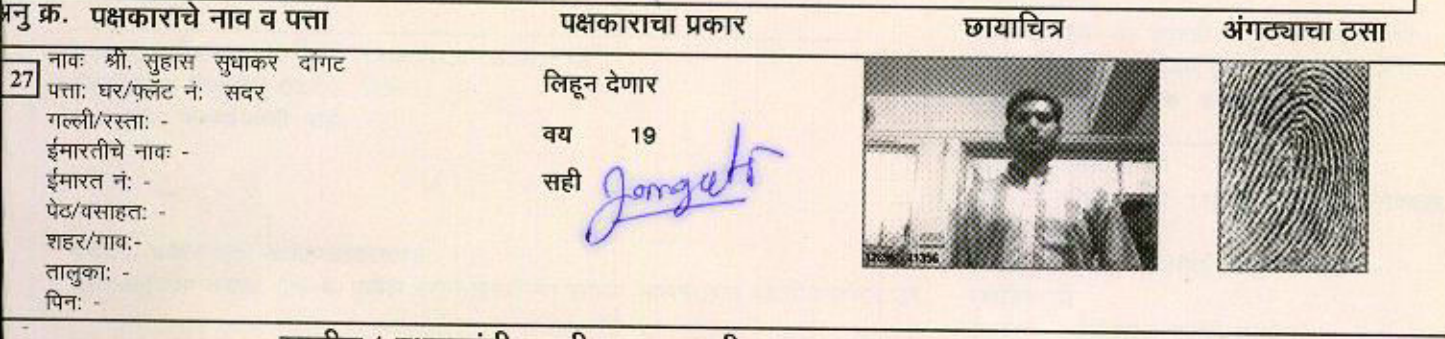 अनु क्र. पक्षकाराचे नाव व पत्ता पक्षकाराचा प्रकार छायाचित्र अंगठ्याचा ठसा
27 नावः श्री. सुहास सुधाकर दांगट
पत्ताः घर/फ्लॅट नंः सदर
गल्ली/रस्ताः -
ईमारतीचे नावः -
ईमारत नंः -
पेठ/वसाहतः -
शहर/गावः-
तालुकाः -
पिनः -
लिहून देणार
वय 19
सही